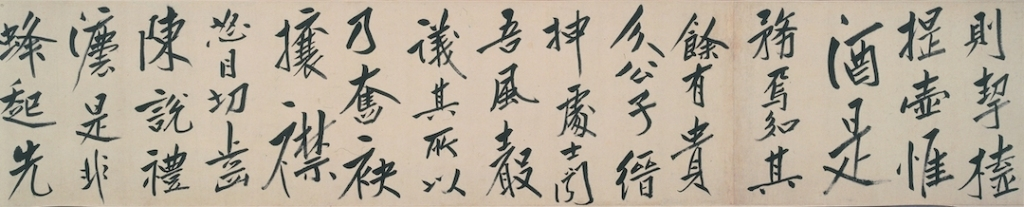 則挈榼
提壺惟
酒是
務焉知其
餘有貴
介公子縉
紳處士聞
吾風聲
議其所以
乃奮袂
攘襟
怒目切齒
陳說禮
灋是非
蜂起先